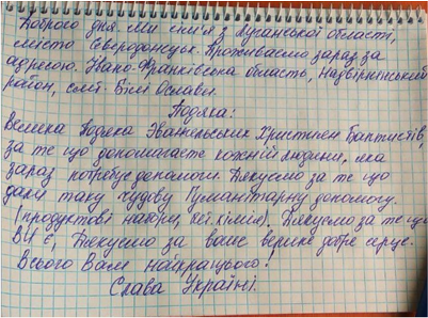 Доброго дня. ми сім'я з Луганської області,
місто Сєвєродонецьк. Проживаємо зараз за
адресою. Івано-Франківська область, Надвірнянський
район, смт. Білі Ослави.
Подяка:
Велика Подяка Эвангильских Християн Баптистів,
за те що допомагаєте кожній людини, яка
зараз потребує допомоги. Дякуємо за те що
дали таку чудову Гуманітарну допомогу.
(продуктові набори, хімія). Дякуємо за те що
ВИ є, Дякуємо за ваше велике добре серце.
Всього Вам найкращього!
Слава Україні.